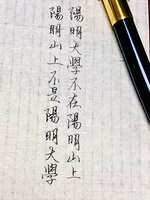 陽明大學不在陽明山上
陽明山上不是陽明大學